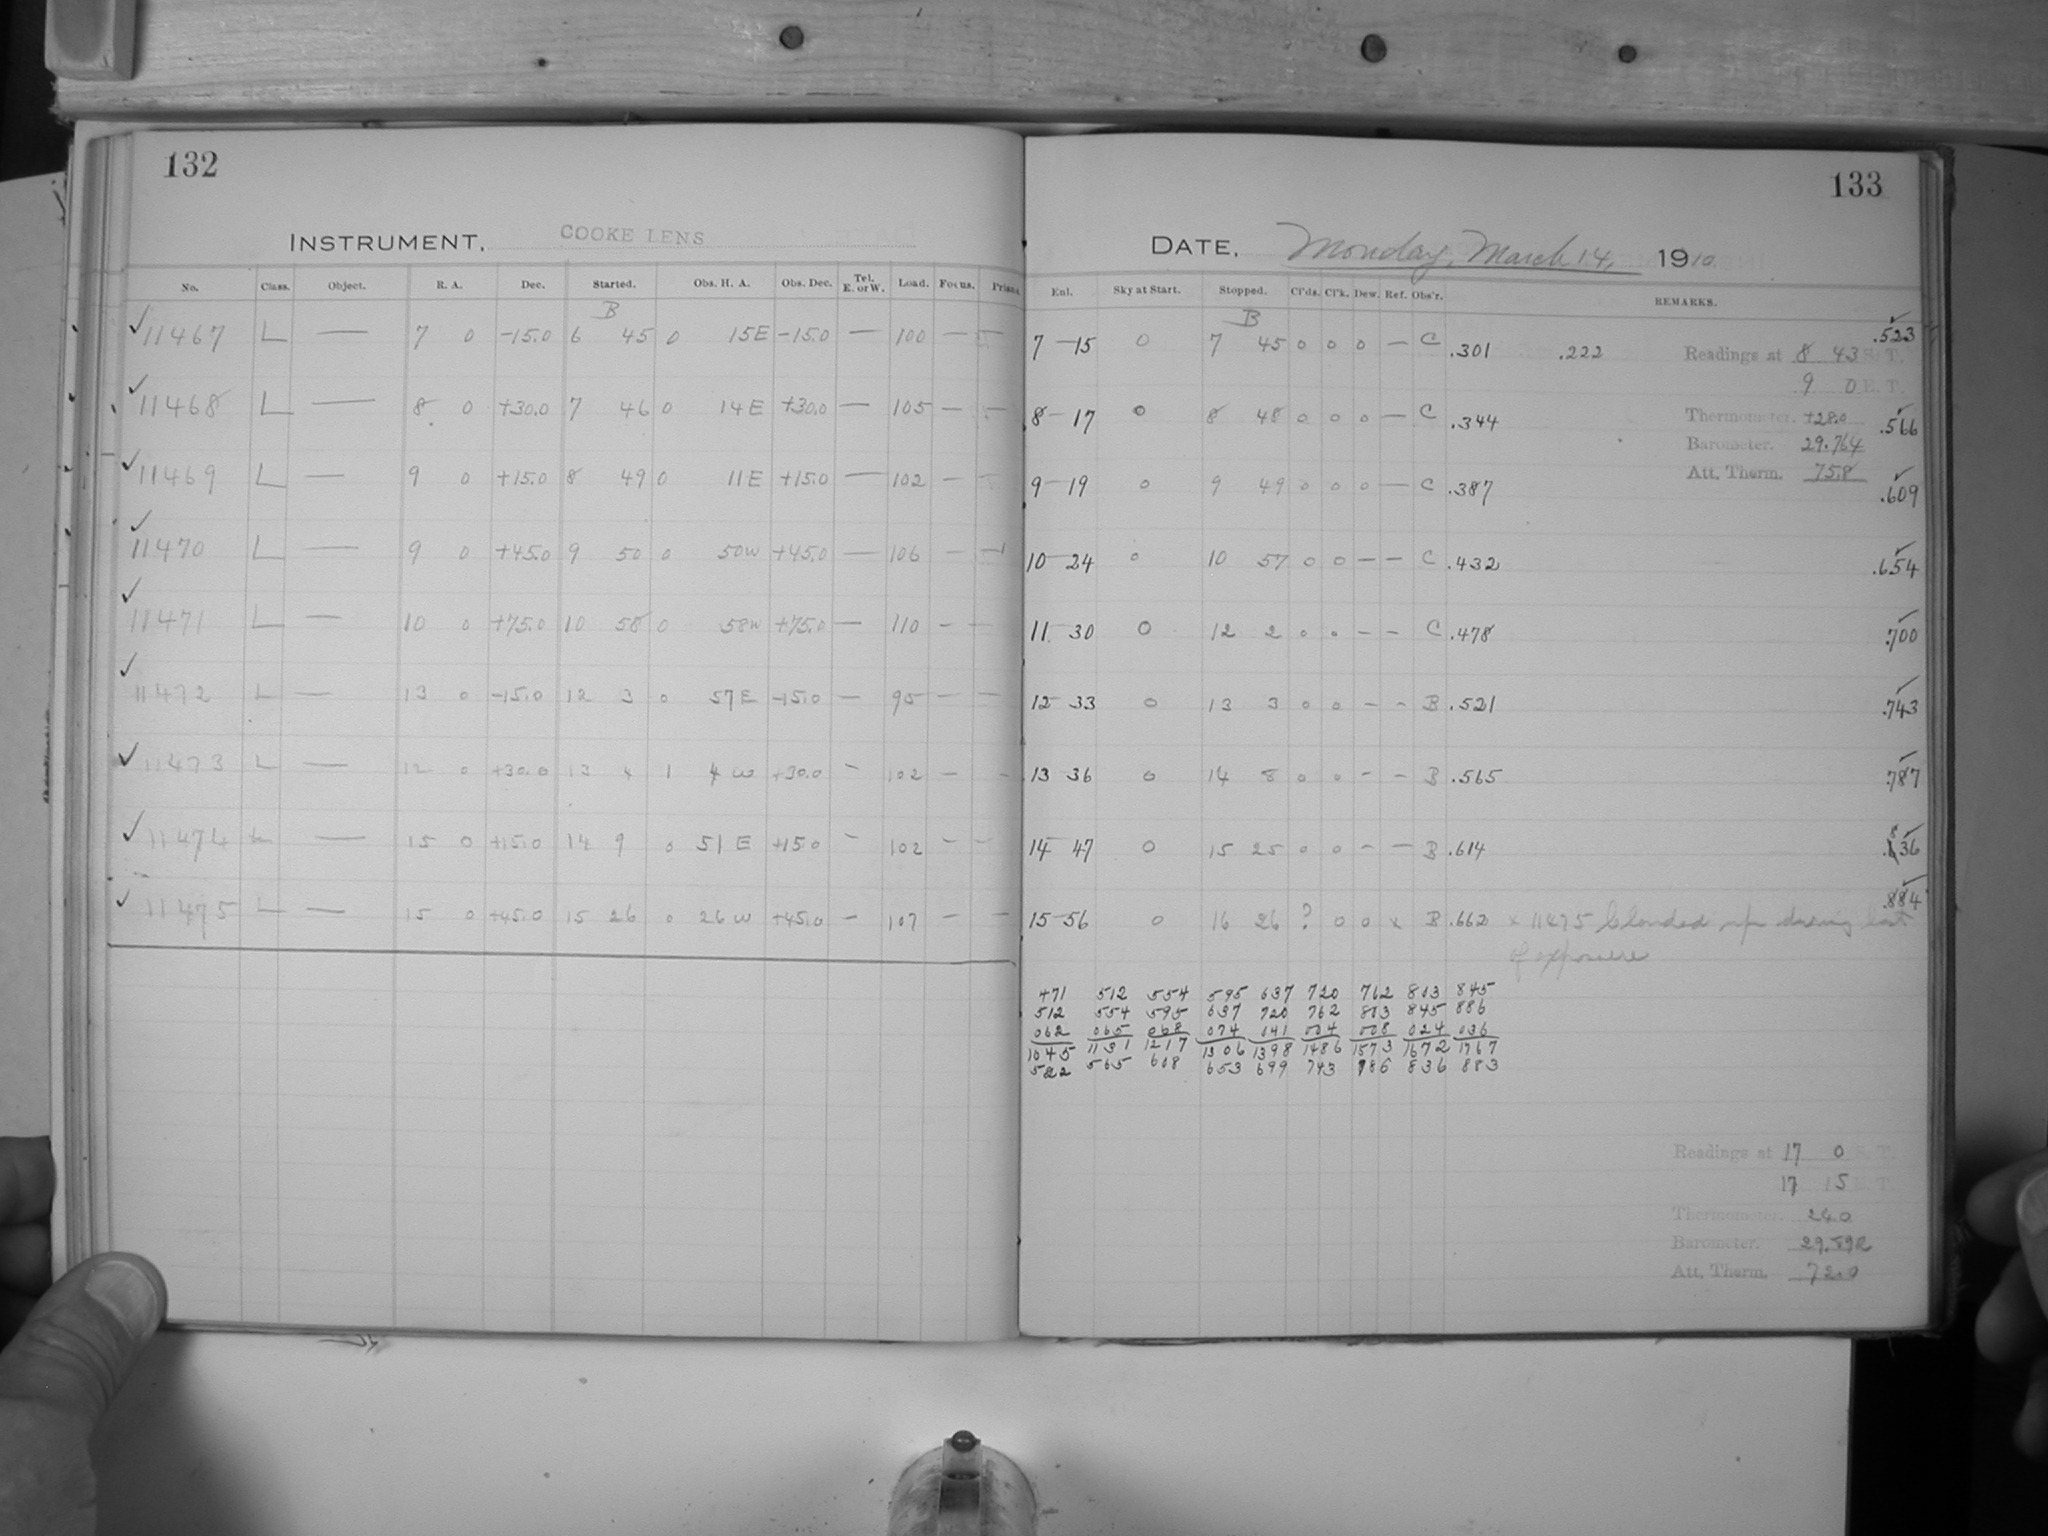 132
INSTRUMENT, COOKE LENS
No. Class. Object. R. A. Dec. Started. Obs. H. A. Obs. Dec. Tel. E. or W. Load. Focus. Prism
B
✓ 11467 L — 7 0 -15.0 6 45 0 15E -15.0 — 100 — —
✓ 11468 L — 8 0 +30.0 7 46 0 14E +30.0 — 105 — —
✓ 11469 L — 9 0 +15.0 8 49 0 11E +15.0 — 102 — —
✓ 11470 L — 9 0 +45.0 9 50 0 50W +45.0 — 106 — —
✓ 11471 L — 10 0 +75.0 10 58 0 58W +75.0 — 110 — —
✓ 11472 L — 13 0 -15.0 12 3 0 57E -15.0 — 95 — —
✓ 11473 L — 12 0 +30.0 13 4 1 4W +30.0 — 102 — —
✓ 11474 L — 15 0 +15.0 14 9 0 51E +15.0 — 102 — —
✓ 11475 L — 15 0 +45.0 15 26 0 26W +45.0 — 107 — —
133
DATE, Monday, March 14, 1910
Enl. Sky at Start. Stopped. Cl'ds. Cl'k. Dew. Ref. Obs'r. REMARKS.
B
7 - 15 0 7 45 0 0 0 — C .301 .222 .523 ✓
Readings at 8 43 S. T.
9 0 E. T.
8 - 17 0 8 48 0 0 0 — C .344 .566 ✓
Thermometer. +28.0
Barometer. 29.764
Att. Therm. 75.8
9 - 19 0 9 49 0 0 0 — C .387 .609 ✓
10 - 24 0 10 57 0 0 — — C .432 .654 ✓
11 30 0 12 2 0 0 — — C .478 .700 ✓
12 - 33 0 13 3 0 0 — — B .521 .743 ✓
13 36 0 14 8 0 0 — — B .565 .787 ✓
14 47 0 15 25 0 0 — — B .614 .836 ✓
15 - 56 0 16 26 ? 0 0 x B .662 x 11475 Clouded up during last .884 ✓
of exposure
471 512 554 595 637 720 762 803 845
512 554 595 637 720 762 803 845 886
062 065 068 074 041 004 008 024 036
1045 1131 1217 1306 1398 1486 1573 1672 1767
522 565 608 653 699 743 786 836 883
Readings at 17 0 S. T.
17 15 E. T.
Thermometer. 24.0
Barometer. 29.892
Att. Therm. 72.0